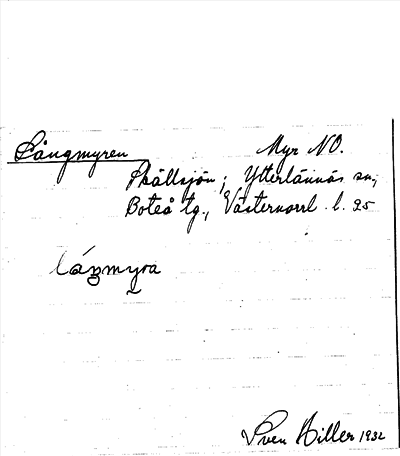 Långmyren Myr NO.
Skållsjön; Ytterlännäs sn,
Boteå tg., Västernorrl. l. 25
láŋmyra
Sven Hiller 1932